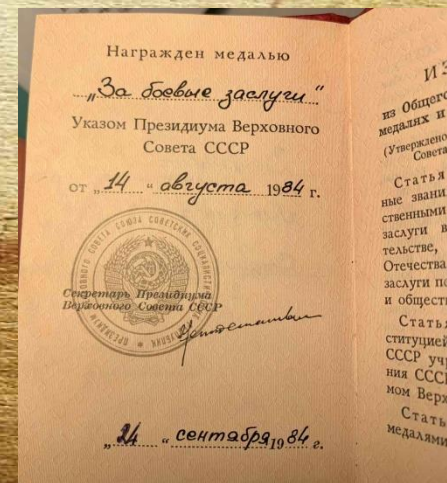 Награжден медалью
„За боевые заслуги"
Указом Президиума Верховного
Совета СССР
от „14 " августа 1984 г.
Секретарь Президиума
Верховного Совета СССР
„24 " сентября 1984 г.
ИЗ
из Общего
медалях и
(Утверждено
Совета
Статья
ные звани
ственными
заслуги в
тельстве,
Отечества
заслуги по
и обществ
Стать
ституцией
СССР учр
ния СССР
мом Верх
Стать
медалями